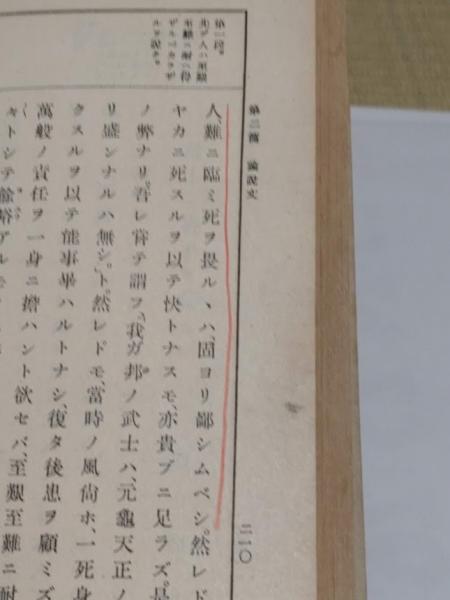 第二篇　論説文
二一〇
第一段。
先ヅ人ハ至艱
至難ニ耐ヘ得
ザルベカラザ
ルヲ説ク。
人、難ニ臨ミ死ヲ畏ルヽハ、固ヨリ鄙シムベシ。然レド
ヤカニ死スルヲ以テ快トナスモ、亦貴ブニ足ラズ。是
ノ弊ナリ。吾レ嘗テ謂フ、「我ガ邦ノ武士ハ、元龜天正ノ
リ盛ンナルハ無シ」ト。然レドモ、當時ノ風尙ホ、一死身
クスルヲ以テ能事畢ハルトナシ、復タ後患ヲ顧ミズ
萬般ノ責任ヲ一身ニ擔ハント欲セバ、至艱至難ニ耐
キトシテ餘裕アルモ